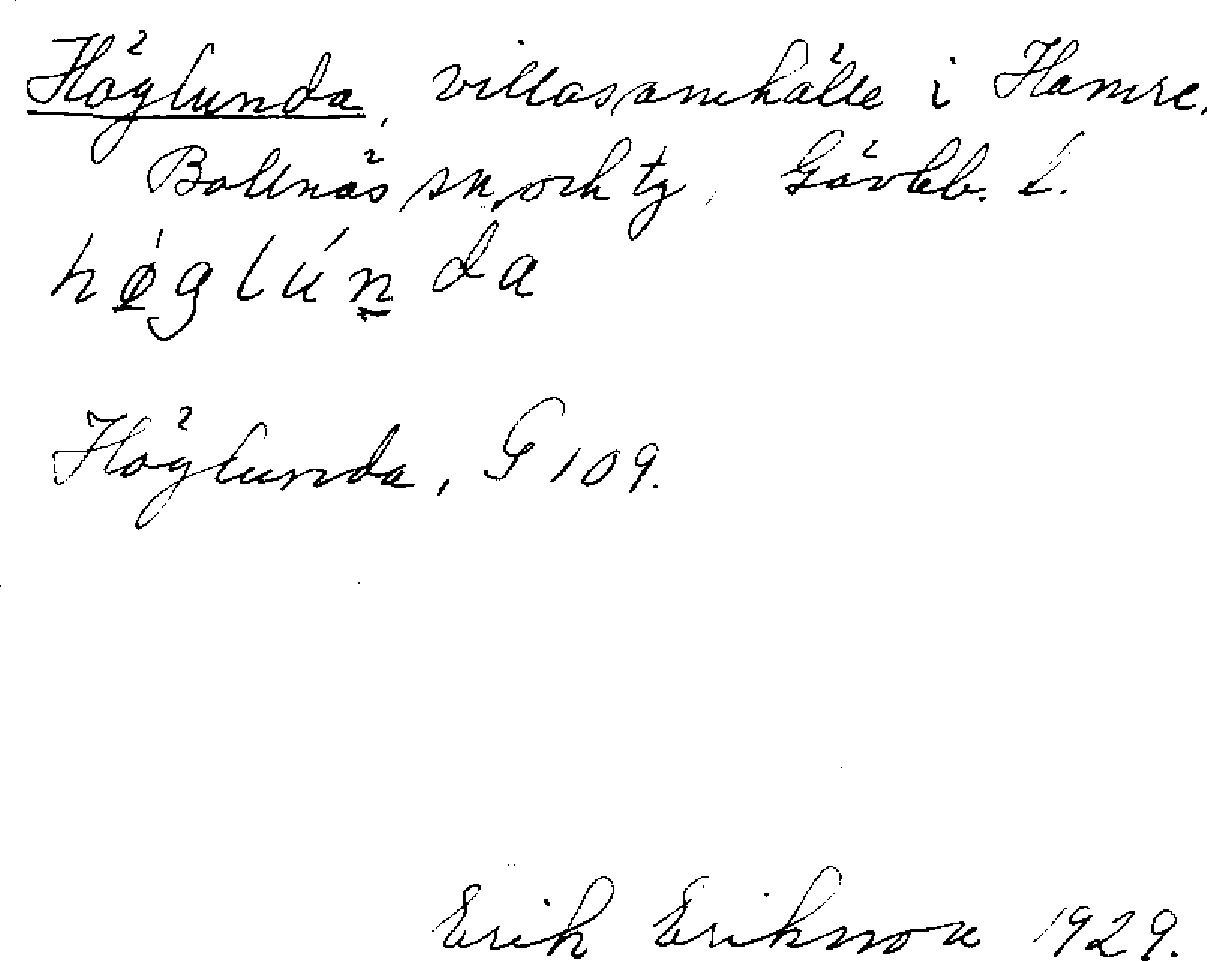 Höglunda, villasamhälle i Hamre,
Bollnäs sn och tg, Gävleb. l.
høglúnda
Höglunda, G 109.
Erik Erikson 1929.